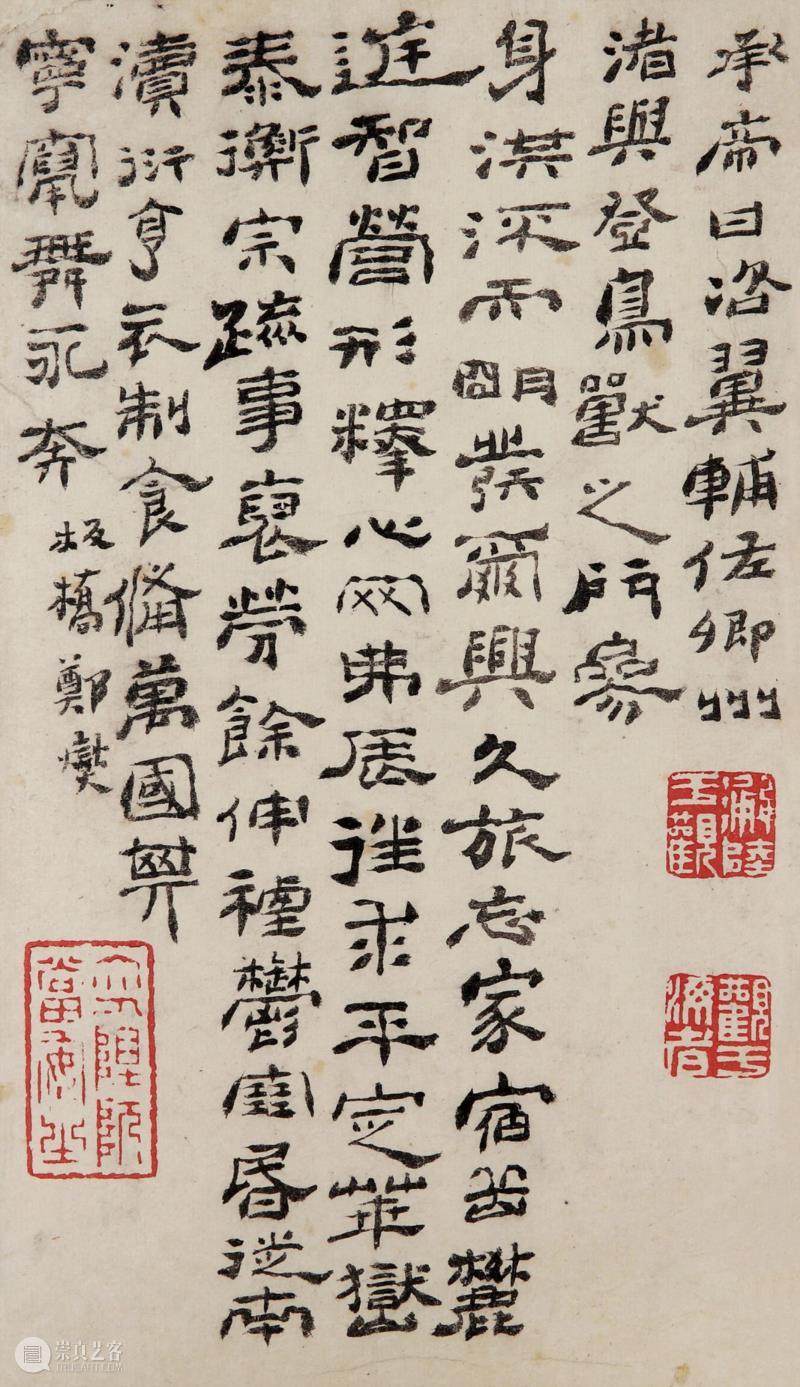 承帝曰咨翼輔佐卿州
渚與登鳥獸之門參
身洪流而朙發爾興久旅忘家宿岳麓
庭智營形釋心罔弗辰往求平定華嶽
泰衡宗疏事裒勞餘伸禋鬱昏徙南
瀆衍亨衣制食備萬國其
寧竄舞永奔
板橋鄭燮
觀于海者
崇真艺客